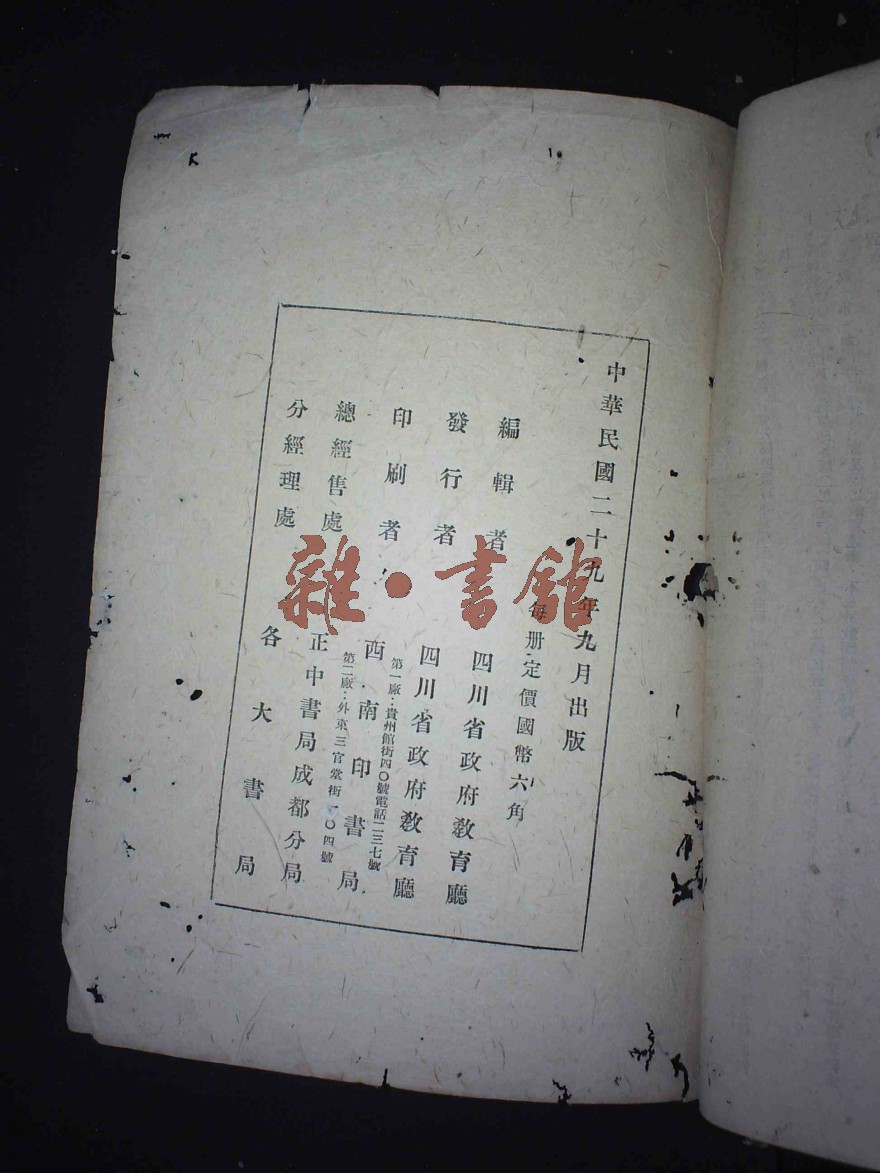 中華民國二十九年九月出版
每册定價國幣六角
編輯者 四川省政府教育廳
發行者 四川省政府教育廳
印刷者 西南印書局
第一廠：貴州館街四〇號電話二三七號
第二廠：外東三官堂街一〇四號
總經售處 正中書局成都分局
分經理處 各大書局
雜·書館